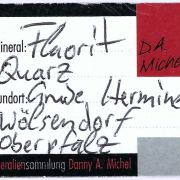 ineral: Fluorit
Quarz
undort: Grube Hermine
Wölsendorf
Oberpfalz
D.A.
Michel
eraliensammlung Danny A. Michel